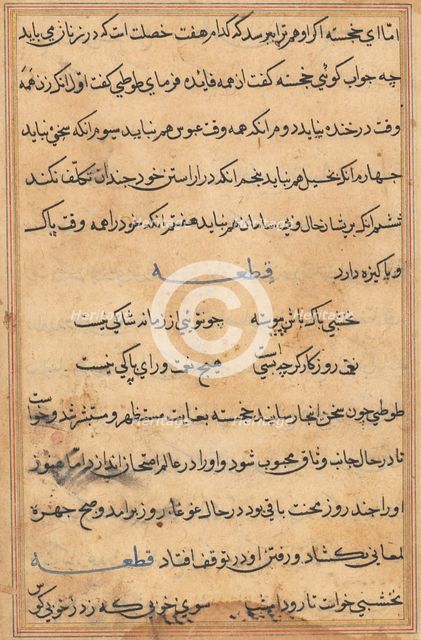 اما ای خجسته اگر او هم ترا بپرسد که کدام هفت خصلت است که در زنان می باید
چه جواب کوئی خجسته کفت از همه فایده فرمای طوطی کفت اول آنکه زن همه
وقت در خنده نباید دوم آنکه همه وقت عبوس هم نباید سیوم آنکه سخی نباید
چهارم آنکه بخیل هم نباید پنجم آنکه در آراستن خود چندان تکلف نکند
ششم آنکه پریشان حال و بی سامان هم نباید هفتم آنکه خود را همه وقت پاک
و پاکیزه دارد قطعه
نخشبی پاک باش پیوسته چو توئی از زمانه شاکی نیست
روزکار کرچه هیچ نعمت ورای پاکی نیست
طوطی چون سخن اینجا رسانید خجسته بغایت مستظهر و مستبشر شد و خواست
تا در حال جانب وثاق محبوب شود و او را در عالم امتحان اندازد اما هنوز
او را چند روز محنت باقی بود در حال غوغاء روز برآمد و صبح چهره
لمعانی بکشاد و رفتن او در توقف افتاد قطعه
نخشبی خواست تا رود امشب سوی خوبی که زد ز خوبی کوس
Heritage Images